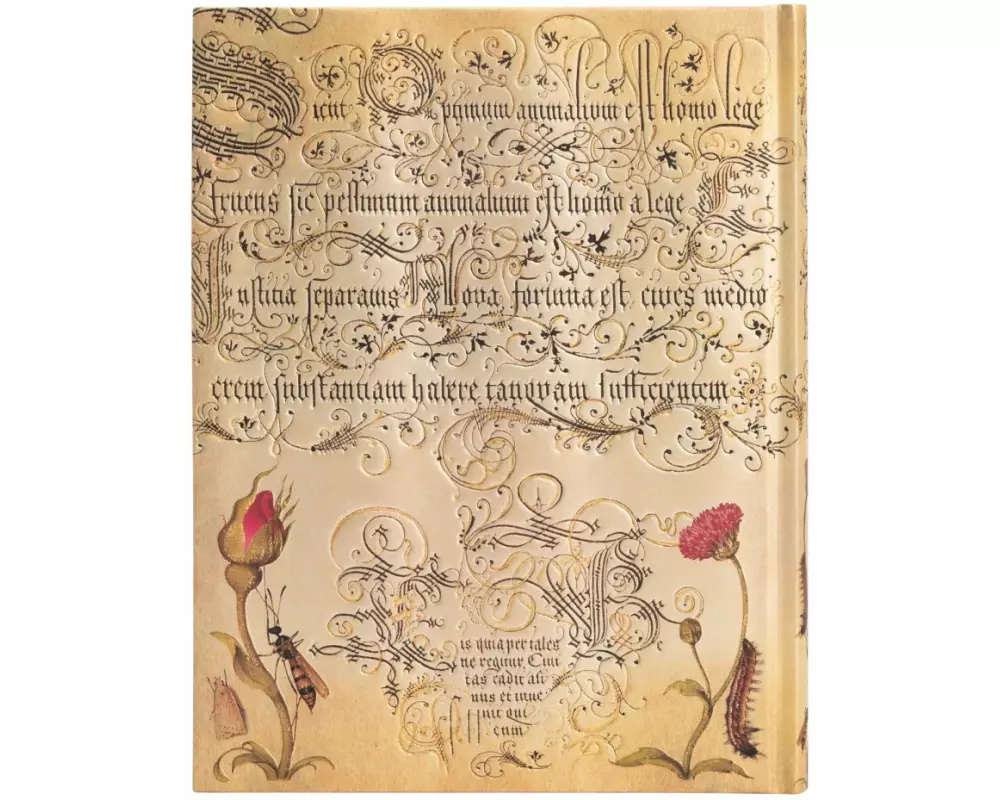 Sicut Optimum animalium est homo lege
fruens sic pessimum animalium est homo a lege
Iustitia separatus Nova fortuna est cives medio
crem substantiam habere tanquam sufficientem
is quia per tales
ne regitur. Civi
tas cadit asi
nus et inve
nit qui
eum